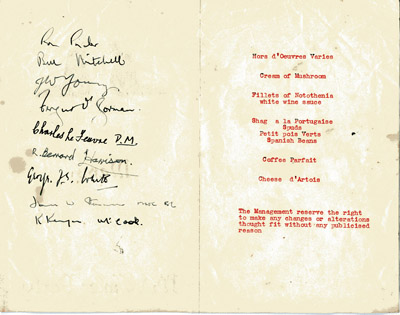 Bill Mitchell
Charles Le Feuvre P.M.
R. Bernard Harrison.
White
Hors d'Oeuvres Varies
Cream of Mushroom
Fillets of Notothenia
white wine sauce
Shag a la Portugaise
Spuds
Petit pois Verts
Spanish Beans
Coffee Parfait
Cheese d'Artois
The Management reserve the right
to make any changes or alterations
thought fit without any publicised
reason